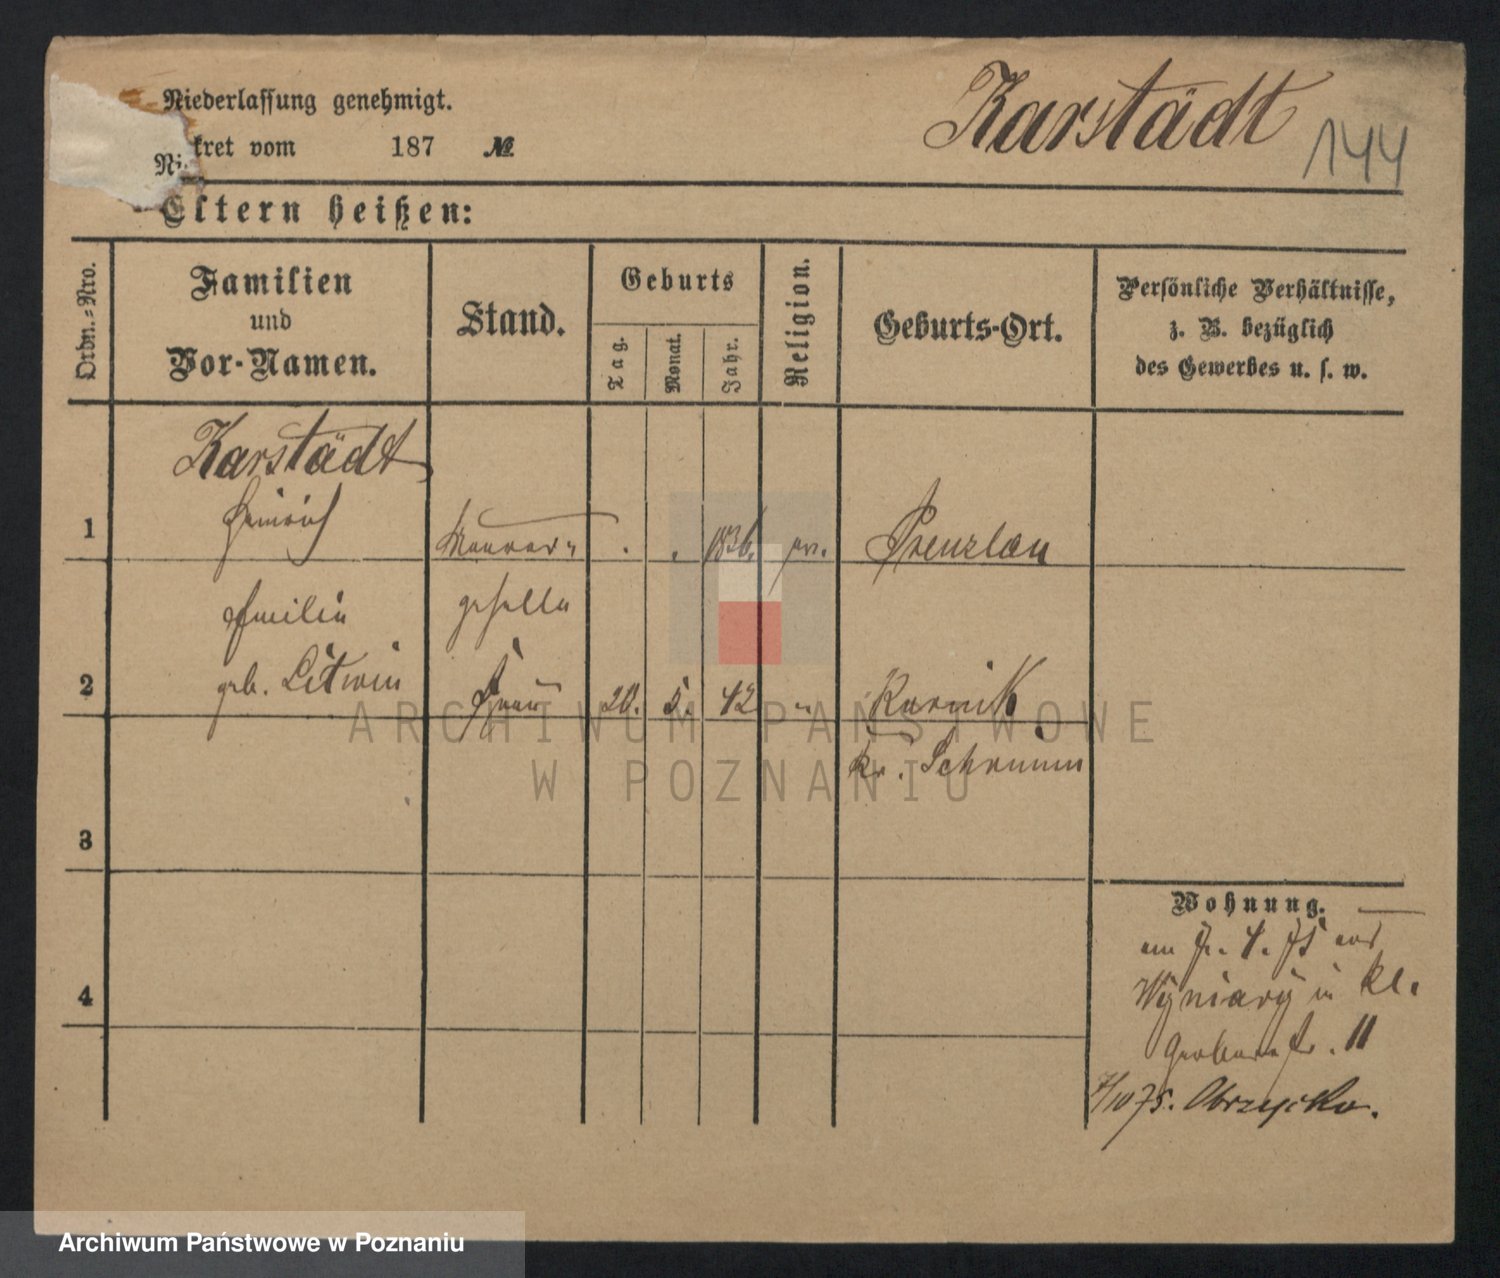 Niederlassung genehmigt.
kret vom 187 №
Karstädt
144
Eltern heißen:
Ordn.-Nro.
Familien
und
Vor-Namen.
Stand.
Geburts
Tag.
Monat.
Jahr.
Religion.
Geburts-Ort.
Persönliche Verhältnisse,
z. B. bezüglich
des Gewerbes u. s. w.
Karstädt
1 Heinrich Maurer- . . 1836. ev. Prenzlau
Emilie geselle
2 geb. Litwin Frau 20. 5. 42 " Kurnik
Kr. Schrimm
3
4
Wohnung.
am 7. 4. 75 aus
Wyniary in Kl.
Gerberstr. 11
7/10 75. Obrzycko.
ARCHIWUM PAŃSTWOWE
W POZNANIU
Archiwum Państwowe w Poznaniu